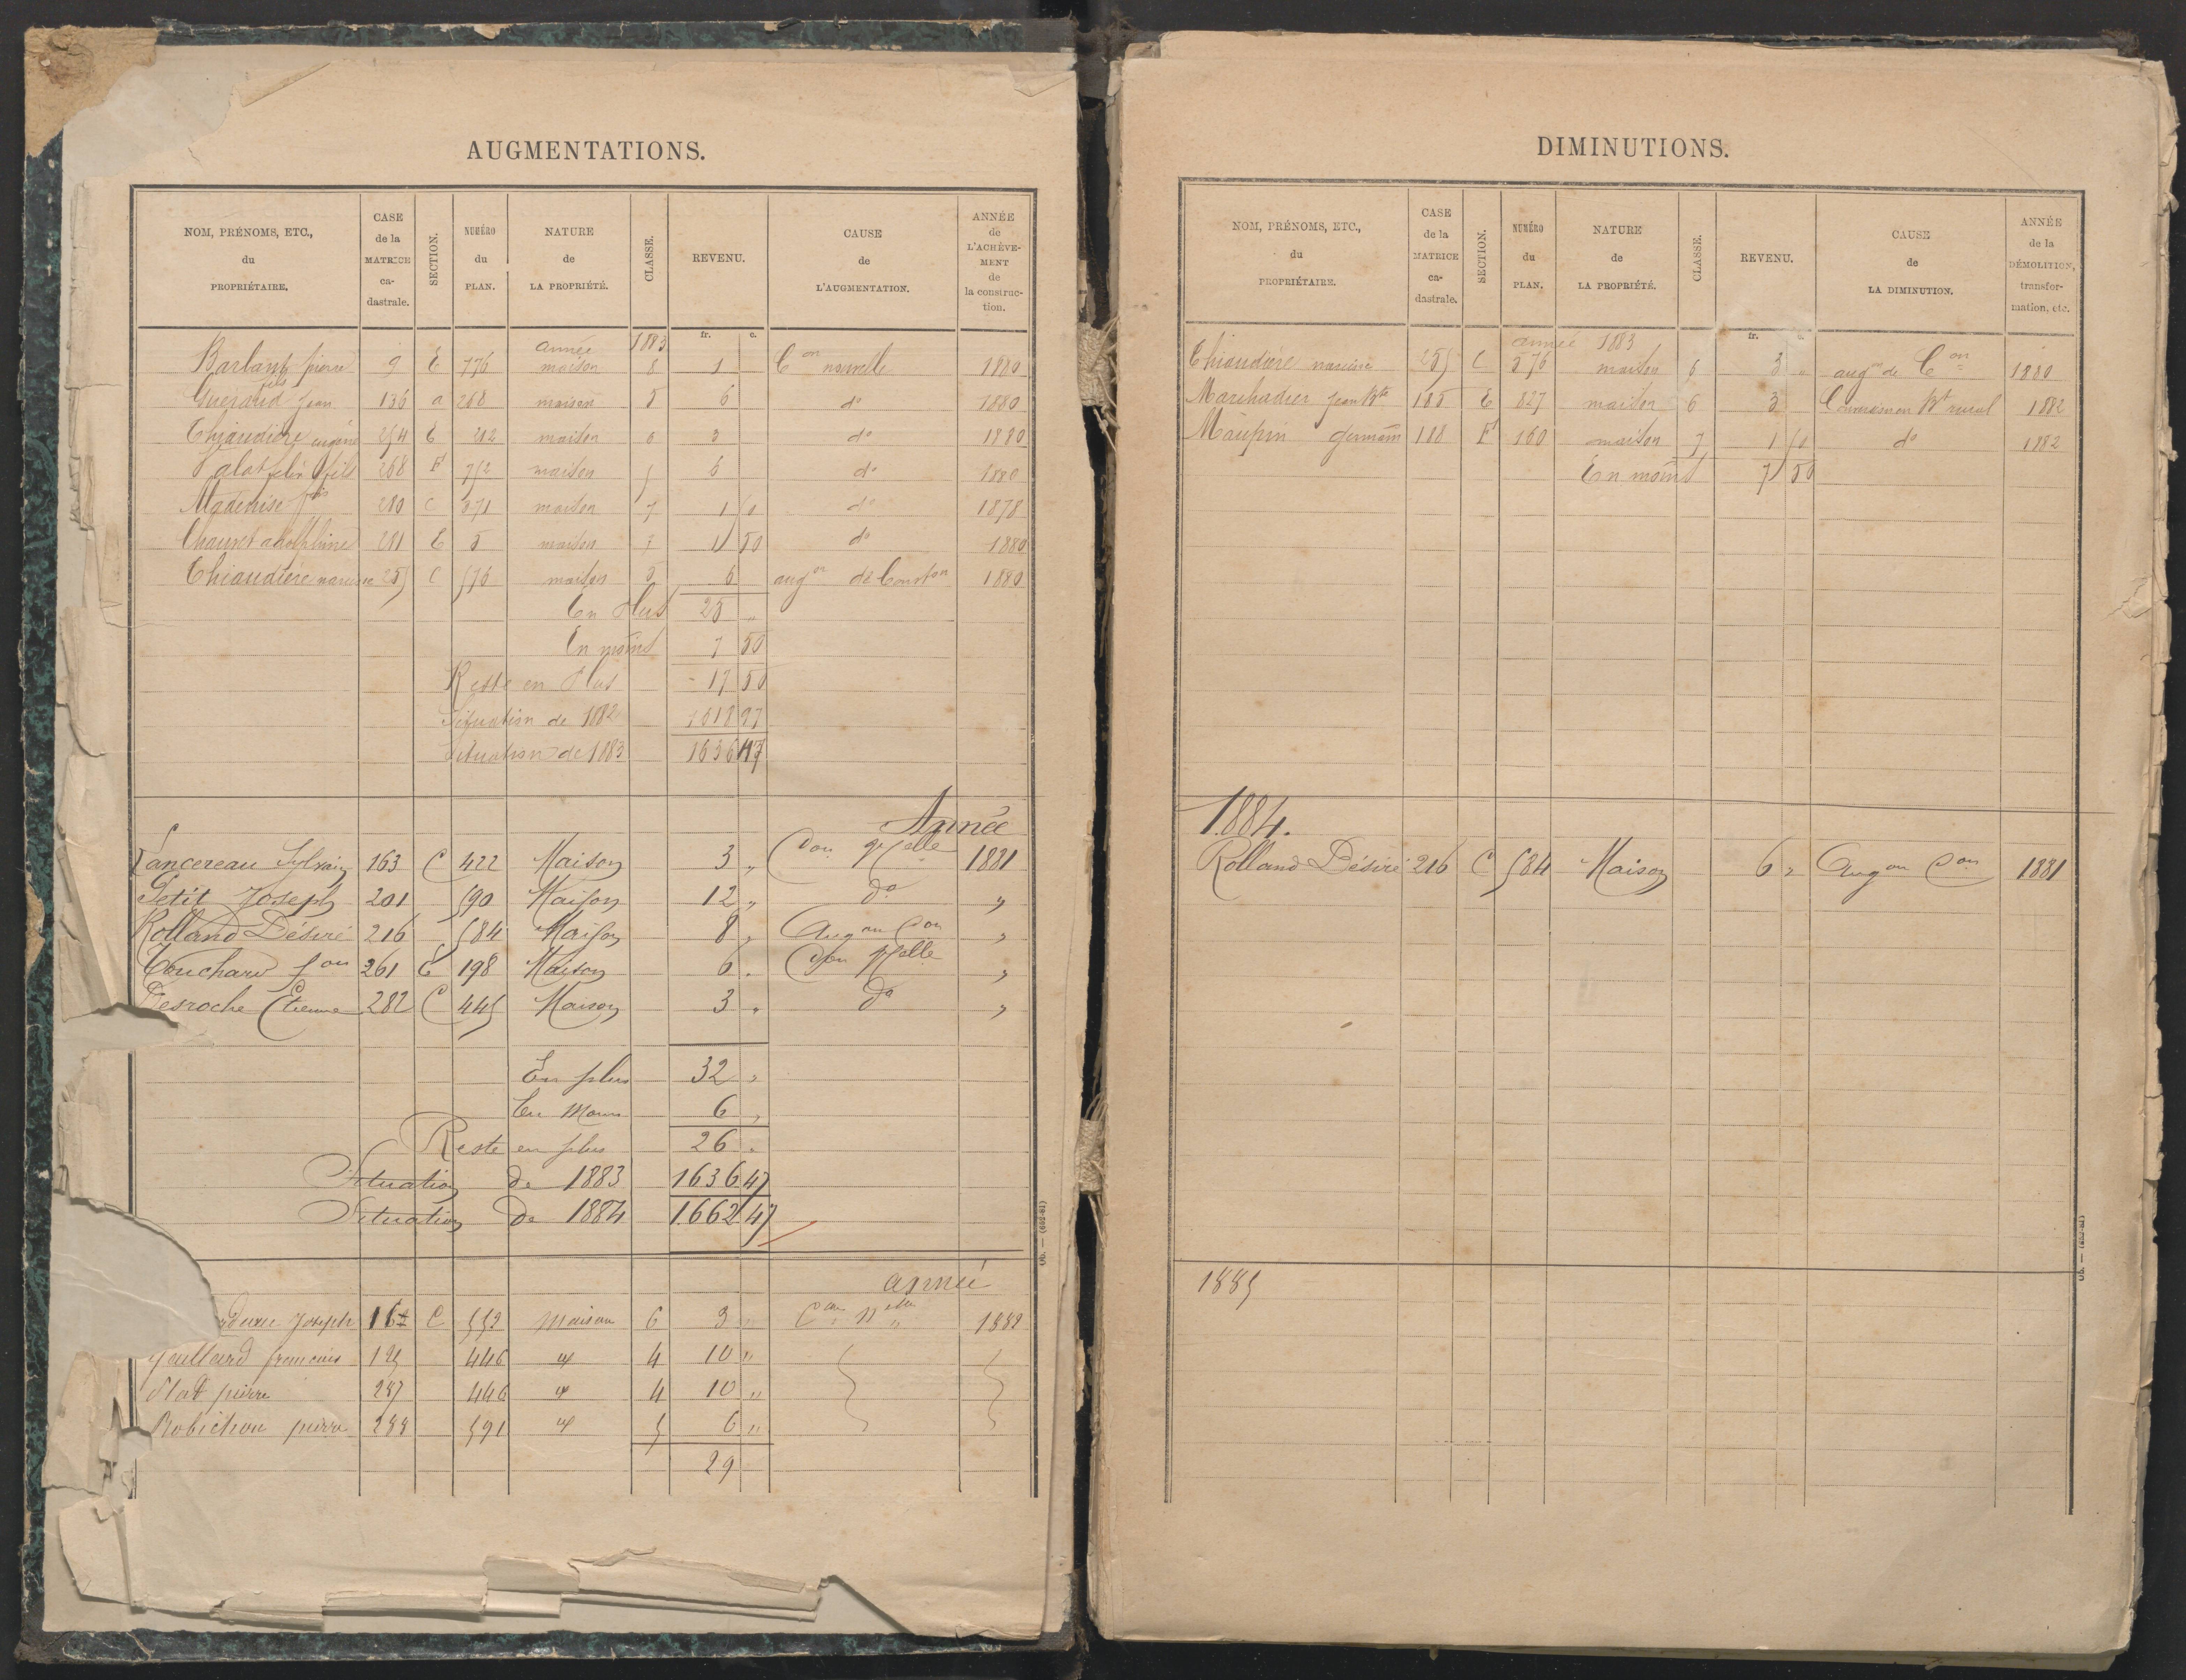 AUGMENTATIONS.
NOM, PRÉNOMS, ETC., du PROPRIÉTAIRE. CASE de la MATRICE ca-dastrale. SECTION. NUMÉRO du PLAN. NATURE de LA PROPRIÉTÉ. CLASSE. REVENU. CAUSE de L'AUGMENTATION. ANNÉE de L'ACHÈVE-MENT de la construc-tion.
fr. c.
année 1883
pierre 9 E 776 maison 8 1 Con nouvelle 1880
Jean 136 a 268 maison 5 6 do 1880
Thiaudière eugène 254 E 212 maison 6 3 do 1880
fils 268 F 752 maison 5 6 do 1880
280 C 371 maison 7 1 50 do 1878
Chauvet 281 E 5 maison 7 1 50 do 1880
Thiaudière narcisse 255 C 576 maison 5 6 augon de Conston 1880
En Plus 25 "
En moins 7 50
Reste en Plus 17 50
Situation de 1882 1618 97
Situation de 1883 1636 47
Année
Lancereau Sylvain 163 C 422 Maison 3 " Con Nelle 1881
Petit Joseph 201 590 Maison 12 " do "
Rolland Désiré 216 584 Maison 8 " Augon Con "
Couchard fois 261 E 198 Maison 6 " Con Nelle "
Desroche Etienne 282 C 445 Maison 3 " do "
En plus 32 "
En Moins 6 "
Reste en plus 26 "
Situation de 1883 1636 47
Situation de 1884 1662 47
année
Joseph C 552 Maison 6 3 " Con Nelle 1882
francois 446 4 10 "
pierre 287 446 4 10 "
Robichon pierre 591 5 6 "
29
Ob. — (682-81)
DIMINUTIONS.
NOM, PRÉNOMS, ETC., du PROPRIÉTAIRE. CASE de la MATRICE ca-dastrale. SECTION. NUMÉRO du PLAN. NATURE de LA PROPRIÉTÉ. CLASSE. REVENU. CAUSE de LA DIMINUTION. ANNÉE de la DÉMOLITION, transfor-mation, etc.
fr. c.
année 1883
Thiaudière narcisse 255 C 576 maison 6 3 " augon de Con 1880
Marchadier jean Bte 185 E 827 maison 6 3 Conversion en Bt rural 1882
Maupin Germain 188 F 160 maison 7 1 50 do 1882
En moins 7 50
1884.
Rolland Désiré 216 C 584 Maison 6 " Augon Con 1881
1885